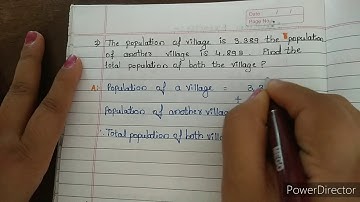 Date
Page No.
2) The population of village is 3,389 the population
of another village is 4,899. Find the
total population of both the village?
A: Population of a village = 3,3
Population of another village +
∴ Total population of both vill
PowerDirector